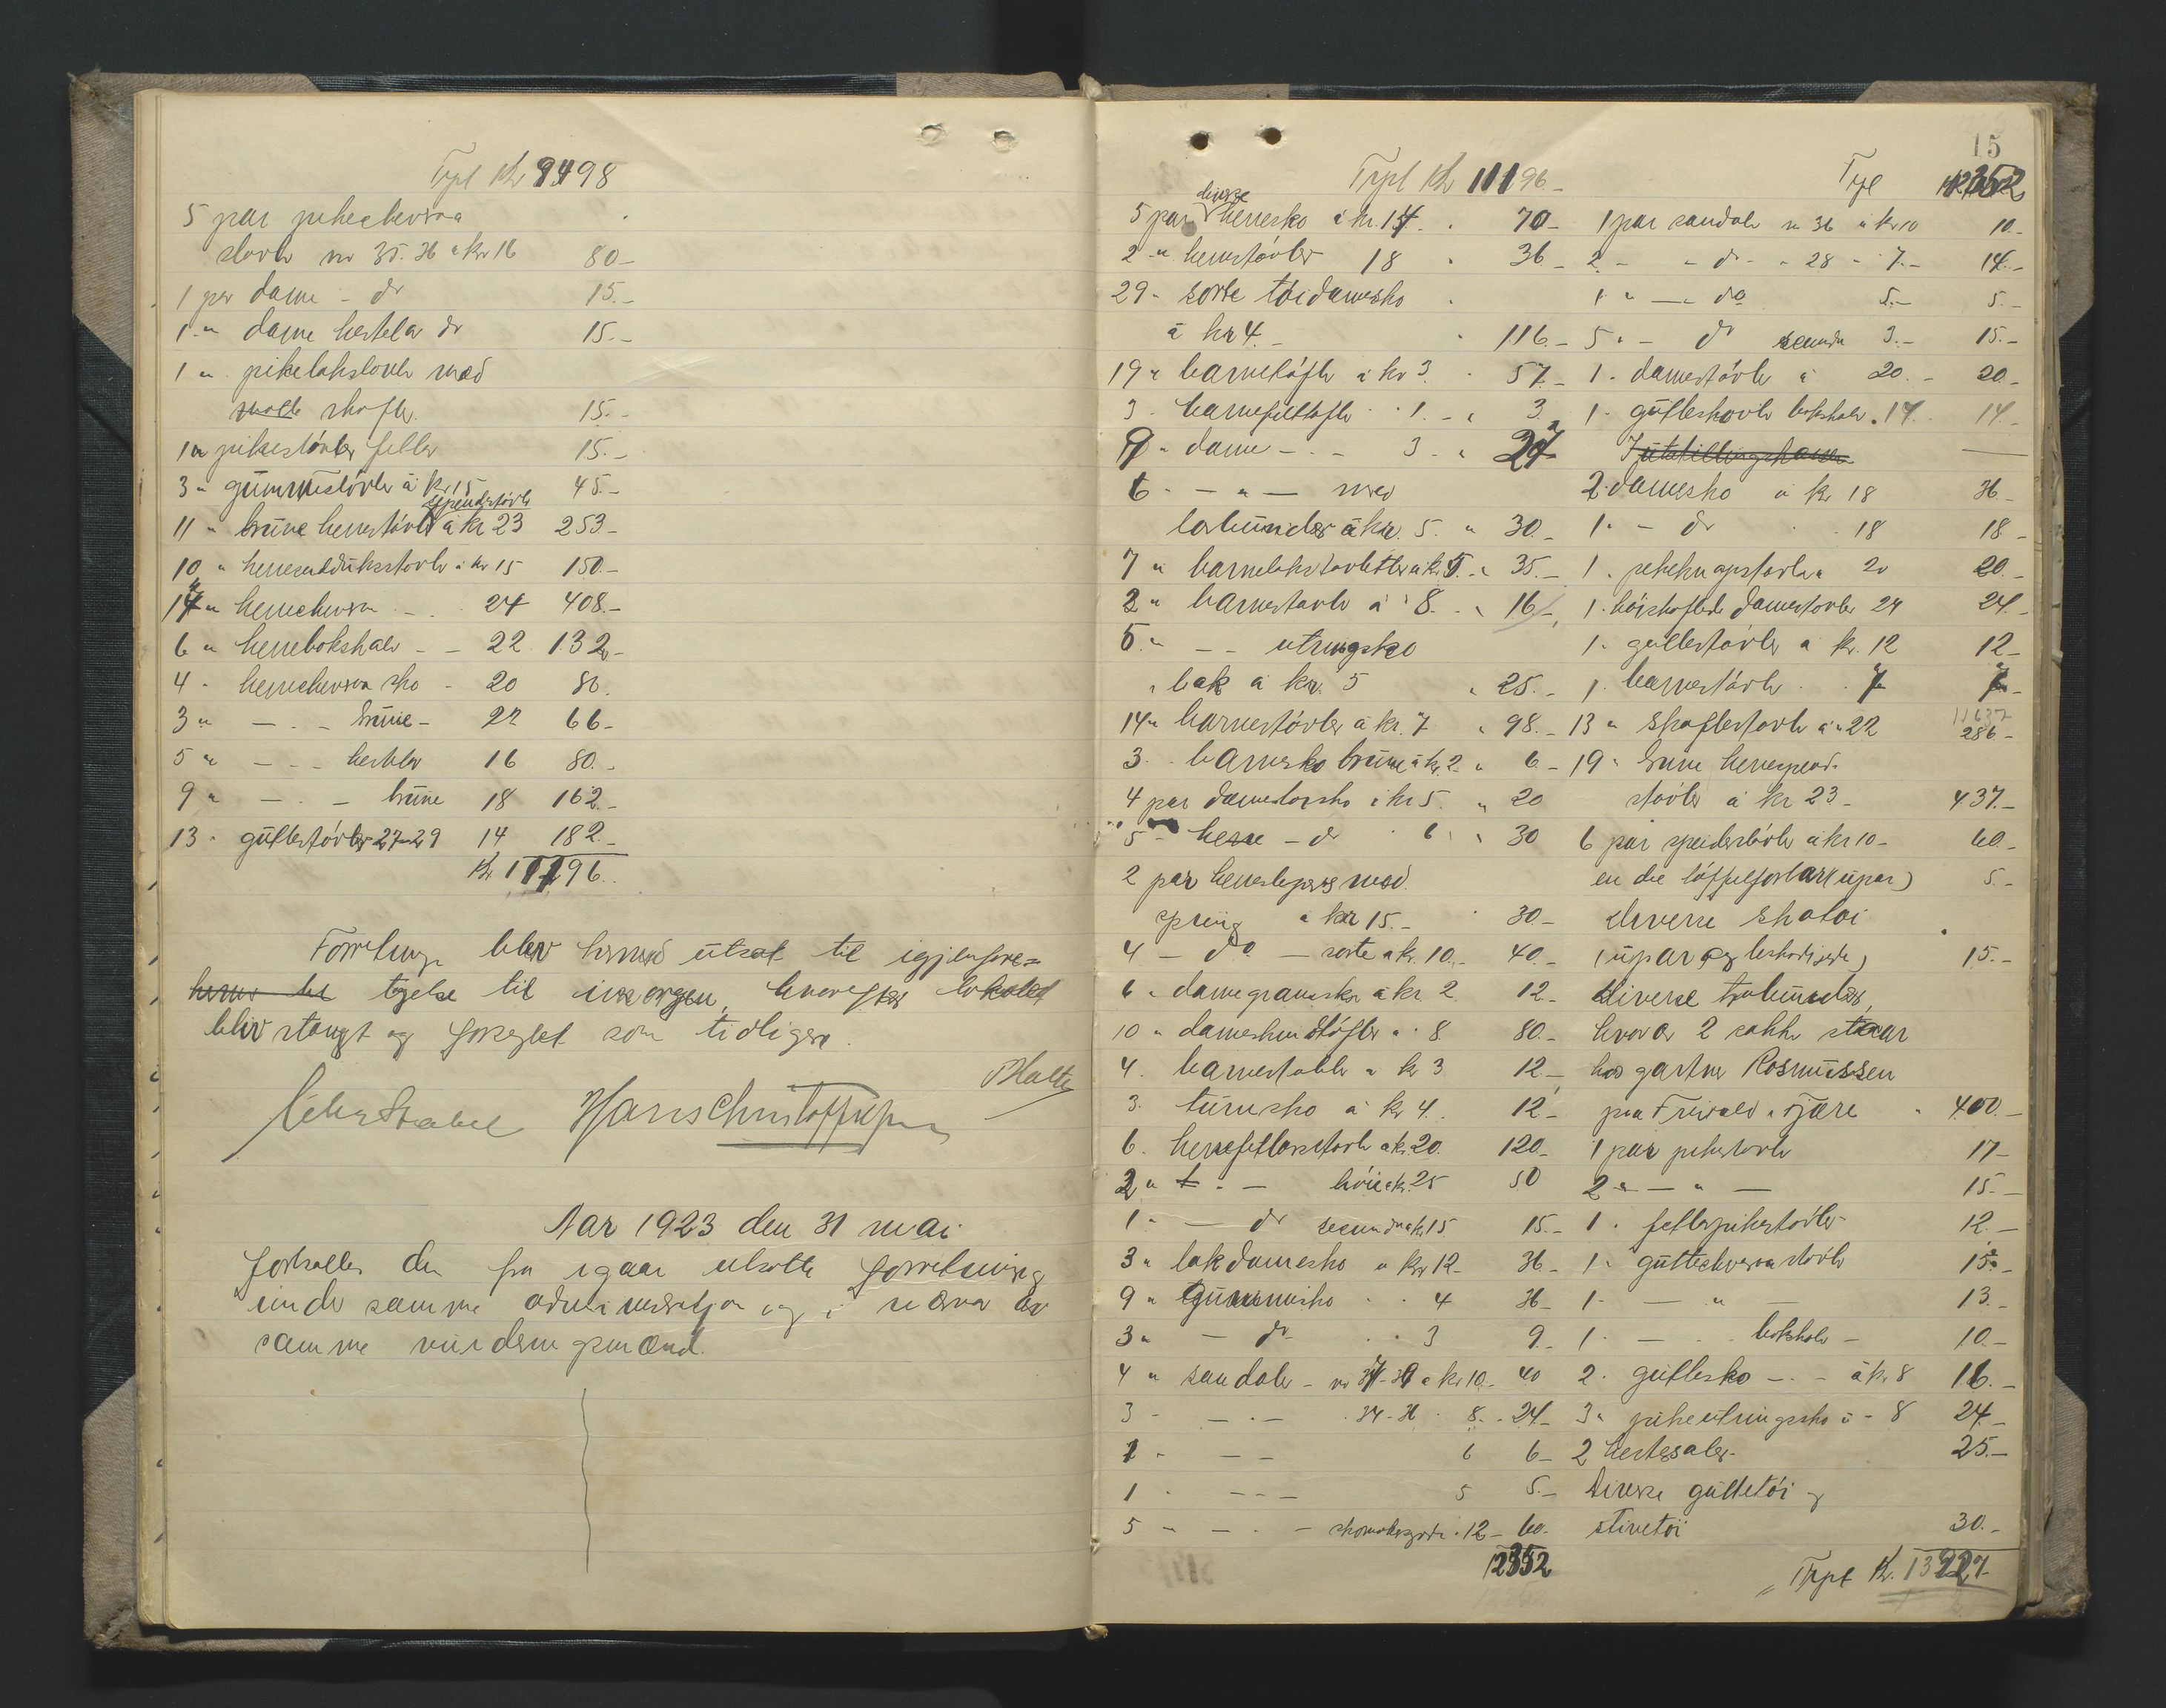 Trpt Kr 9498
5 par pikechevraux
støvler no 35-36 a kr 16 80-
1 par dame - do 15.-
1 " dame hestelær do 15.-
1 " pikelakstøvler med
matte skafter. 15.-
1 " pikestøvler feller 15.-
3 " gummistøvler à kr 15 45.-
speiderstøvle
11 " brune herrestøvler à kr 23 253-
10 " herreseilduksstøvler à kr 15 150.-
17 " herrechevrau - 24 408.-
6 " herrebokskalv - - 22 132-
4 " herrechevrau sko - 20 80.
3 " - . - brune - 22 66-
5 " - . - hestelær 16 80.-
9 " - . - brune 18 162.-
13 " guttestøvler 27-29 14 182.-
Kr 11196.
Forretning blev hermed utsat til igjenfore=
tagelse til imorgen, hvorefter lokalet
blev stængt og forseglet som tidligere.
Hans Christoffersen
Aar 1923 den 31 mai
fortsattes den fra igaar utsatte forretning
under samme administration og i nærvær av
samme vurderingsmænd.
15
Trpt Kr 11196-
diverse
5 par herresko à kr. 14. 70-
2 " herrestøvler 18 36-
29 " sorte tøidamesko
à kr 4.- 116.-
19 " barnetøfler à kr 3. 57.-
3 " barnefilttøfler 1.- 3
9 " dame - . - 3 - 27
6 " - " - med
lærbunder à kr. 5. " 30.-
7 " barnelakstøvletter à k. 5. - 35.-
2 " barnestøvler à 8. - 16-
5 " - - utringsko
lak à kr. 5 25.-
14 " barnestøvler à kr. 7 98.-
3 " barnesko brune à kr. 2 " 6-
4 par dametøisko à kr 5. " 20
5 - herre - do 6 " 30
2 par herreslippers med
spring à kr 15.- 30-
4 - do - sorte à k. 10.- 40.-
6 " dame à kr. 2 12-
10 " dameskindtøfler " 8 80.-
4 " barnestøvler à kr 3 12-
3 " turnsko à kr 4. 12-
6 " herrefetlærstøvler à kr. 20. 120-
2 " - høie à k. 25 50
1 " - do secunda à k 15 15-
3 " lakdamesko à kr 12- 36-
9 " Gummisko " 4 36-
3 " - do " 3 9-
4 " sandaler - no 37-39 à kr 10- 40
3 - - . - 34-36 8. - 24-
1 - - - 6 6-
1 - - - 5 5-
5 - - . - 12- 60-
12352
Trpt 12352
1 par sandaler no 36 à kr 10 10-
2 - - do - " 28 - 7.- 14.-
1 " - do 5.- 5.-
5 " - do secunda 3.- 15.-
1 " damestøvler à 20.- 20-
1 " guttestøvler bokskalv 14 14.-
2 damesko à kr 18 36-
1 " - do 18 18-
1 " pikeknapstøvler " 20 20.-
1 " høiskaftede damestøvler 24 24-
1 " guttestøvler à kr. 12 12-
1 " barnestøvler 7 7-
11637
13 " skaftestøvler à 22 286-
19 " brune herrespeider
støvler à kr 23- 437-
6 par speiderstøvler à kr 10- 60.-
en del tøffelforlær (upar) 5.-
diverse skotøi
(upar og beskadigede) 15.-
diverse træbunder,
hvorav 2 sække staar
hos gartner Rasmussen
paa Freivald i Tjære 400.-
1 par pikestøvler 17-
2 " - " - 15.-
1 " fetlærpikestøvler 12.-
1 " guttechevrau støvler 15.-
1 - - " - 13.-
1 " - . bokskalv - 10-
2 " guttesko - . - à k. 8 16.-
3 " pikeutringssko à - 8 24-
2 hestesaler 25.-
diverse guttetøi og
stivetøi 30.-
Trpt Kr. 13927-